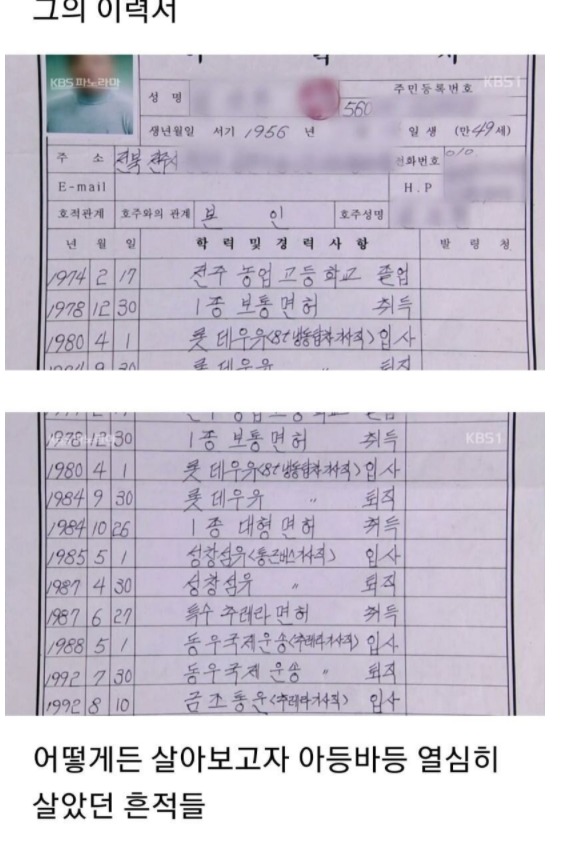 그의 이력서
KBS 파노라마
KBS1
성 명
주민등록번호
560
생년월일 서기 1956 년 일생 (만 49세)
주 소 전북 전주시
전화번호 010
E-mail
H.P
호적관계 호주와의 관계 본 인 호주성명
년 월 일 학 력 및 경 력 사 항 발 령 청
1974 2 17 전주 농업 고등학교 졸업
1978 12 30 1종 보통면허 취득
1980 4 1 롯데우유(8t냉동탑차기사직) 입사
1984 9 30 롯데우유 퇴직
1978 12 30 1종 보통면허 취득
KBS1
1980 4 1 롯데우유(8t냉동탑차기사직) 입사
1984 9 30 롯데우유 〃 퇴직
1984 10 26 1종 대형면허 취득
1985 5 1 성창섬유(통근버스기사직) 입사
1987 4 30 성창섬유 〃 퇴직
1987 6 27 특수 추레라면허 취득
1988 5 1 동우국제운송(추레라기사직) 입사
1992 7 30 동우국제운송 〃 퇴직
1992 8 10 금조통운(추레라기사직) 입사
어떻게든 살아보고자 아등바등 열심히
살았던 흔적들